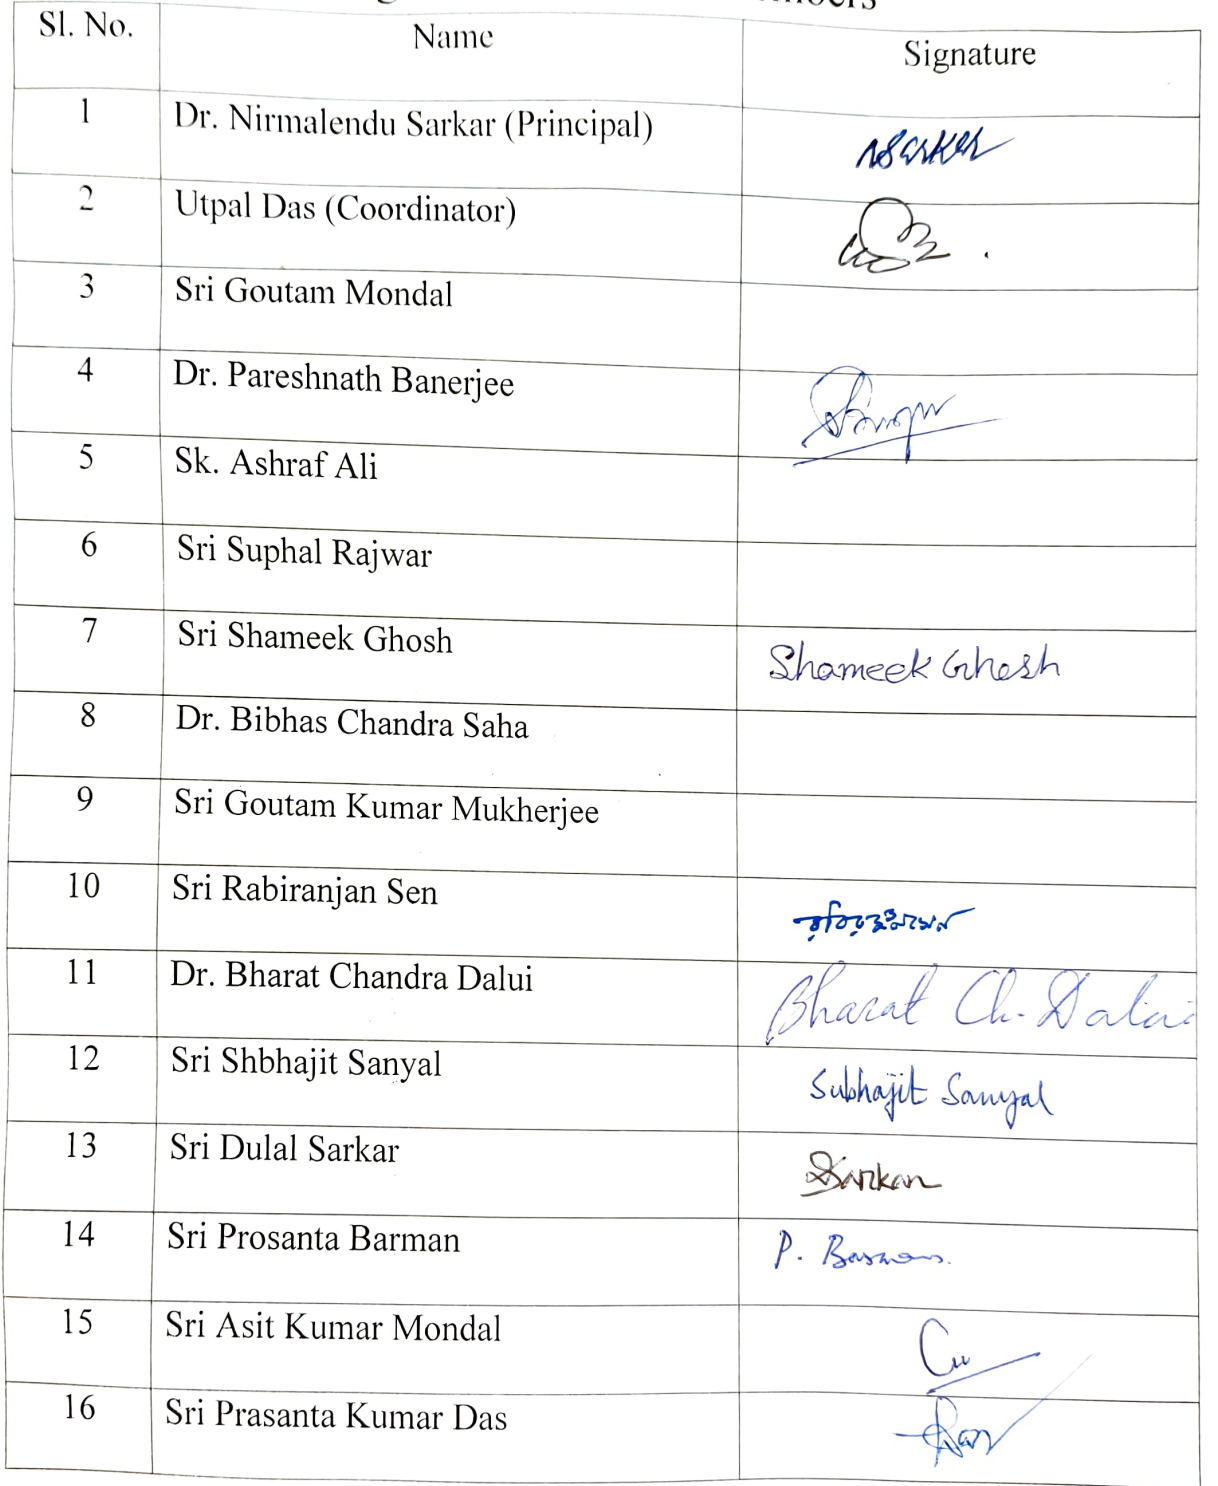 Sl. No. Name Signature
1 Dr. Nirmalendu Sarkar (Principal) NSarkar
2 Utpal Das (Coordinator)
3 Sri Goutam Mondal
4 Dr. Pareshnath Banerjee
5 Sk. Ashraf Ali
6 Sri Suphal Rajwar
7 Sri Shameek Ghosh Shameek Ghosh
8 Dr. Bibhas Chandra Saha
9 Sri Goutam Kumar Mukherjee
10 Sri Rabiranjan Sen রবিরঞ্জন সেন
11 Dr. Bharat Chandra Dalui Bharat Ch. Dalui
12 Sri Shbhajit Sanyal Subhajit Sanyal
13 Sri Dulal Sarkar DSarkar
14 Sri Prosanta Barman P. Barman.
15 Sri Asit Kumar Mondal
16 Sri Prasanta Kumar Das